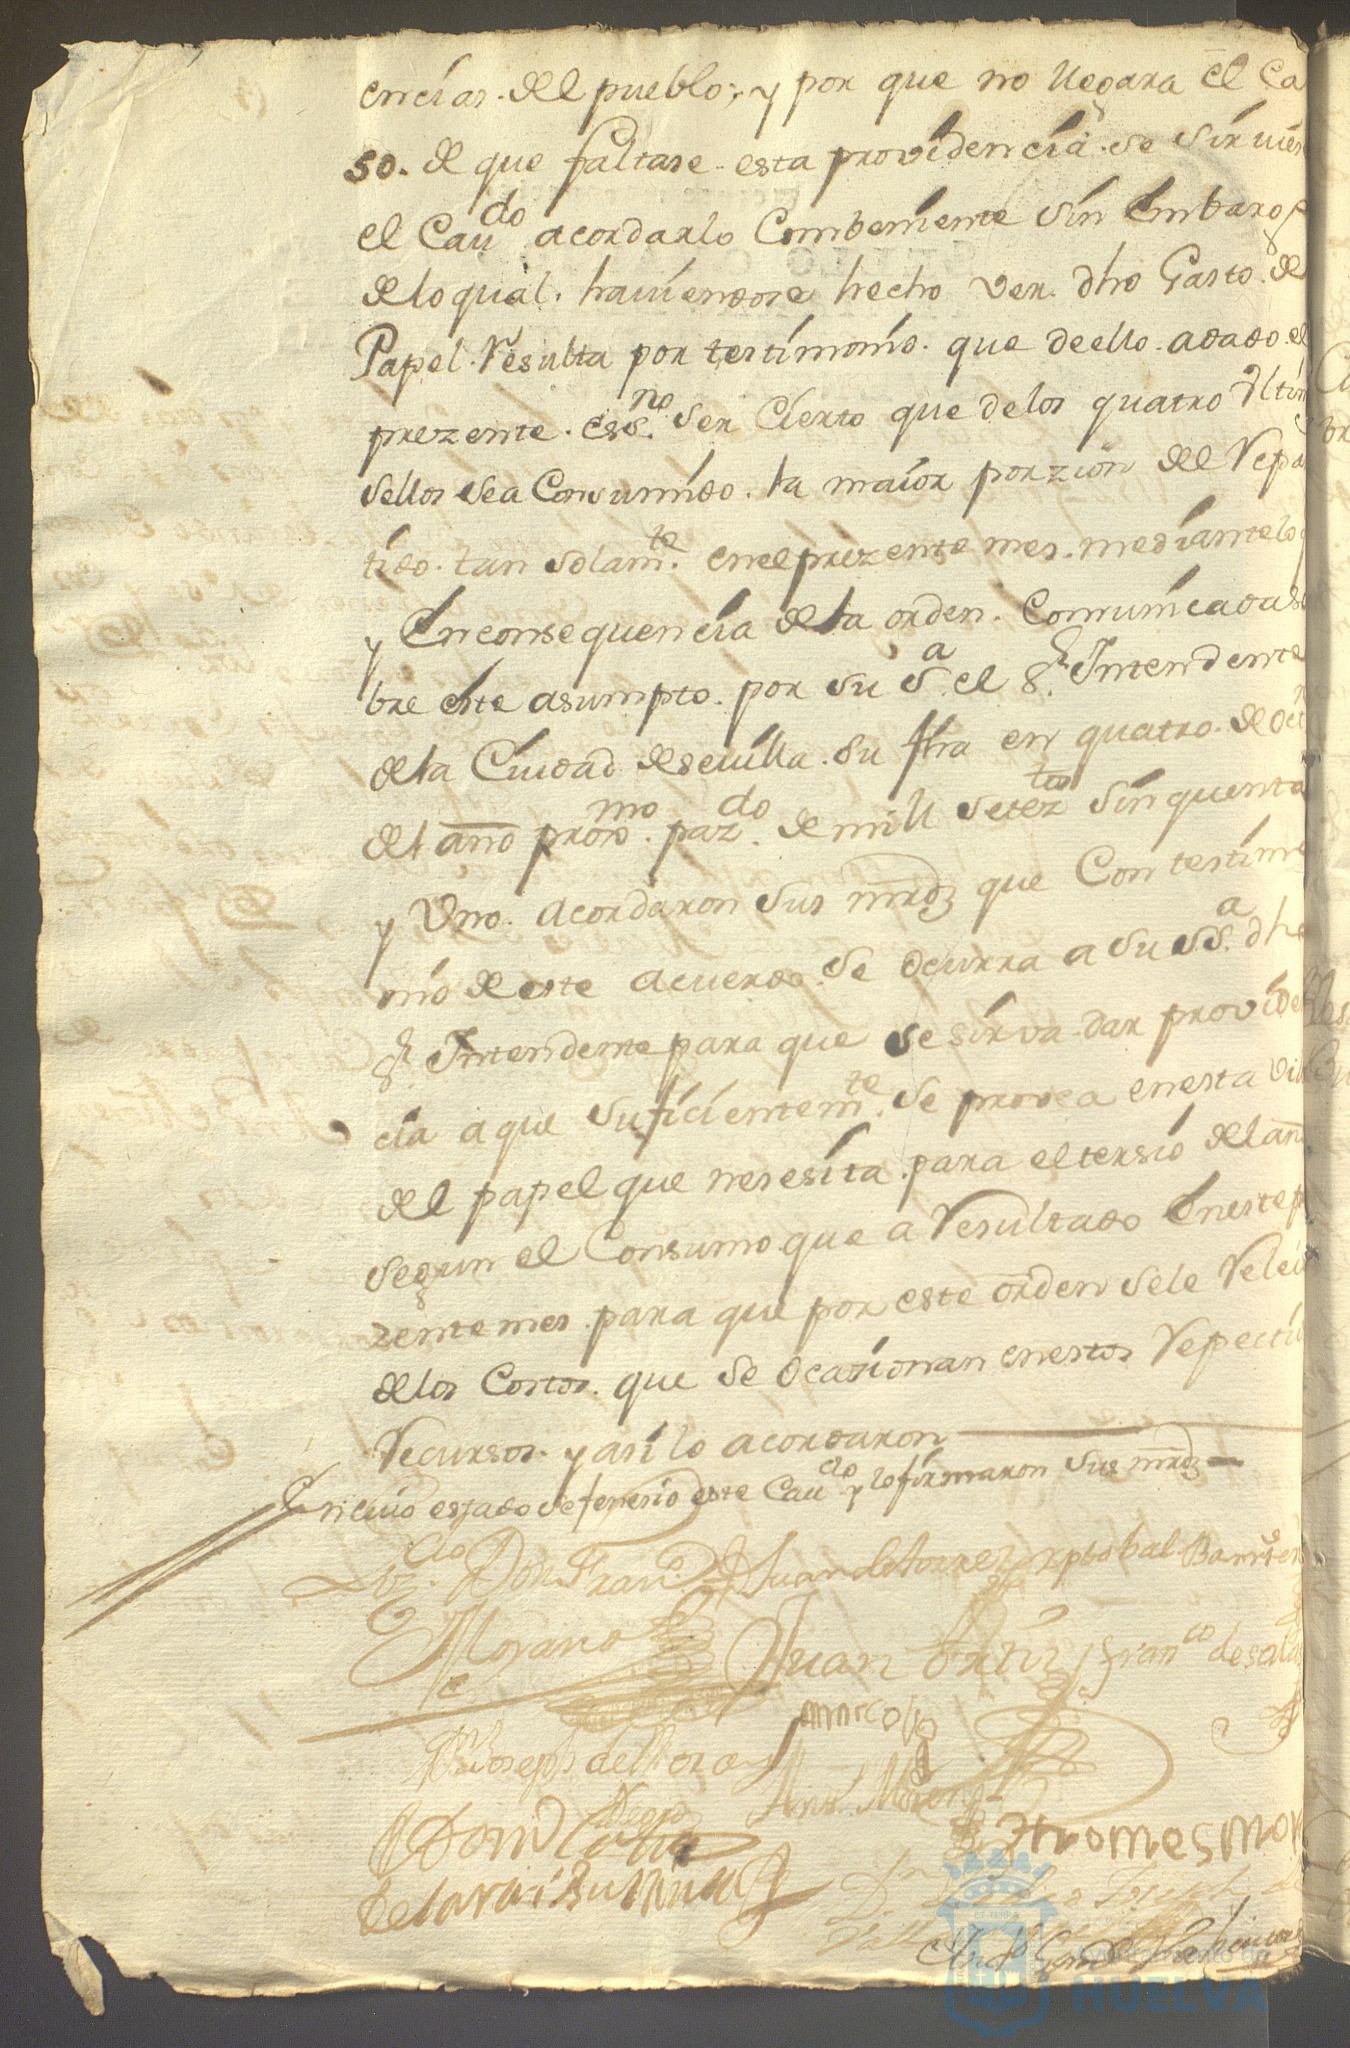 encias. del pueblo; y por que no llegara el ca
so. de que faltase esta providencia. se sirvies
el Cau.do acordar lo Combeniente sin embargo
de lo qual. haviendose hecho ver. dho Gasto. de
Papel. Resulta por testimonio. que de ello. a dado. el
prezente. ess.no ser Cierto que de los quatro Ultim
sellos se a Consumido. la maior porzion del Repar
tido. tan solam.te en el prezente mes. mediante lo q
y En consequencia de la orden. Comunicada so
bre este asumpto. por su S.a el S.r Intendente
de la Ciudad de sevilla. su fha en quatro. de Oct
del año proxmo. paz.do de mill setez.tos sinquenta
y Uno. acordaron sus mrdz que Con testimo
nio de este acuerdo. se ocurra a su SS.a dho
S.r Intendente para que se sirva dar providen
cia a que suficientem.te se provea en esta vill
del papel que nesesita. para el tersio del añ
segun el Consumo que a Resultado En este p
zente mes. para que por este orden se le Relev
de los Costos. que se ocasionan en estos Repecti
Recursos. y asi lo acordaron
En cuio estado se fenesio este Cau.do y lo firmaron sus mrdz
Liz.do Don Fran.co Juan de torres xptobal Barrter
Morano Juan Ortiz Fran.co de sala
marcos
Joseph del toro
Ant.o Moreno
Domi
thomes mor
D.n Joseph
And.s
Ayuntamiento de
HUELVA